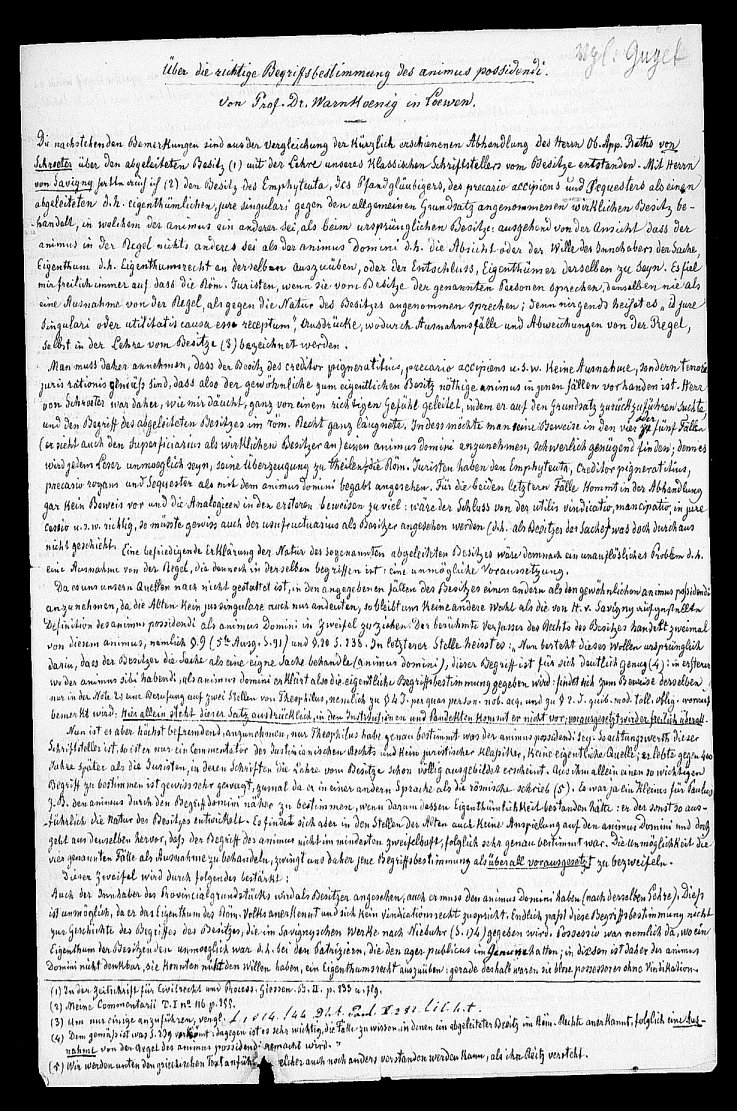 vgl. Guyet
Über die richtige Begriffsbestimmung des animus possidendi.
von Prof. Dr. Warnkoenig in Loewen.
Die nachstehenden Bemerkungen sind aus der Vergleichung der kürzlich erschienenen Abhandlung des Herrn Ob. App. Raths von
Schroeter über den abgeleiteten Besitz (1) mit der Lehre unseres klassischen Schriftstellers vom Besitze entstanden. Mit Herrn
von Savigny hatte auch ich (2) den Besitz des Emphyteuta, des Pfandgläubigers, des precario accipiens und Sequesters als einen
abgeleiteten d.h. eigenthümlichen, jure singulari gegen den allgemeinen Grundsatz angenommenen wirklichen Besitz be-
handelt, in welchem der animus ein anderer sei, als beim ursprünglichen Besitz: ausgehend von der Ansicht dass der
animus in der Regel nichts anderes sei als der animus domini d.h. die Absicht oder der Wille des Innhabers der Sache,
Eigenthum d.h. Eigenthumsrecht an derselben auszuüben, oder der Entschluss, Eigenthümer derselben zu seyn. Es fiel
mir freilich immer auf dass die Röm. Juristen, wenn sie vom Besitze der genannten Personen sprechen, denselben nie als
eine Ausnahme von der Regel, als gegen die Natur des Besitzes angenommen sprechen; denn nirgends heisst es „id jure
singulari oder utilitatis causa esse receptum", Ausdrücke, wodurch Ausnahmsfälle und Abweichungen von der Regel,
selbst in der Lehre vom Besitze (3) bezeichnet werden.
Man muss daher annehmen, dass der Besitz des creditor pigneratitius, precario accipiens u.s.w. keine Ausnahme, sondern tenori
juris rationis gemäss sind, dass also der gewöhnliche zum eigentlichen Besitz nöthige animus in jenen fällen vorhanden ist. Herr
von Schroeter war daher, wie mir däucht, ganz von einem richtigen Gefühl geleitet, indem er auf den Grundsatz zurückzuführen suchte,
und den Begriff des abgeleiteten Besitzes im röm. Recht ganz läugnete. Indess möchte man seine Beweise in den vier oder fünf Fällen
(er sieht auch den Superficiarius als wirklichen Besitzer an) einen animus domini anzunehmen, schwerlich genügend finden; denn es
wird jedem Leser unmoeglich seyn, seine Überzeugung zu theilen, die Röm. Juristen haben den Emphyteuta, Creditor pigneratitius,
precario rogans und Sequester als mit dem animus domini begabt angesehen. Für die beiden letztern Fälle kommt in der Abhandlung
gar kein Beweis vor und die Analogieen in den ersteren beweisen zu viel: wäre der Schluss von der utilis vindicatio, mancipatio, in jure
cessio u.s.w. richtig, so müsste gewiss auch der ususfructuarius als Besitzer angesehen werden (d.h. als Besitzer der Sache) was doch durchaus
nicht geschieht. Eine befriedigende Erklärung der Natur des sogenannten abgeleiteten Besitzes wäre demnach ein unauflösliches Problem d.h.
eine Ausnahme von der Regel, die dennoch in derselben begriffen ist: eine unmögliche Voraussetzung.
Da es uns unsern Quellen nach nicht gestattet ist, in den angegebenen fällen des Besitzes einen andern als den gewöhnlichen animus possidendi
anzunehmen, da die Alten kein jus singulare auch nur andeuten, so bleibt uns keine andere Wahl als die von H. v. Savigny aufgestellte
Definition des animus possidendi als animus Domini in Zweifel zu ziehen. Der berühmte Verfasser des Rechts des Besitzes handelt zweimal
von diesem animus, nemlich §. 9 (5te Ausg. S. 91) und §. 20 S. 238. In letzterer Stelle heisst es: „Nun besteht dieses Wollen ursprünglich
darin, dass der Besitzer die Sache als eine eigne Sache behandle (animus domini), dieser Begriff ist für sich deutlich genug (4): in ersterer
wo der animus sibi habendi, als animus domini erklärt also die eigentliche Begriffsbestimmung gegeben wird: findet sich zum Beweise derselben
nur in der Note 2) eine Berufung auf zwei Stellen von Theophilus, nemlich zu § 4 J. per quas person. nob. acq. und zu § 2 J. quib. mod. toll. oblig. worauf
bemerkt wird: Hier allein steht dieser Satz ausdrücklich, in den Institutionen und Pandekten kommt er nicht vor; vorausgesetzt wird er freilich überall.
Nun ist es aber höchst befremdend, anzunehmen, nur Theophilus habe genau bestimmt was der animus possidendi sey. So achtungswerth dieser
Schriftsteller ist, so ist er nur ein Commentator des Justinianischen Rechts und kein juristischer Klassiker, keine eigentliche Quelle; er lebte gegen 400
Jahre später als die Juristen, in deren Schriften die Lehre vom Besitze schon völlig ausgebildet erscheint. Aus ihm allein einen so wichtigen
Begriff zu bestimmen ist gewiss sehr gewagt, zumal da er in einer andern Sprache als die römische schrieb (5). Es war ja ein kleines für Paulus
z.B. den animus durch den Begriff domini näher zu bestimmen, wenn darum dessen Eigenthümlichkeit bestanden hätte: er der sonst so aus-
führlich die Natur des Besitzes entwickelt. Es findet sich aber in den Stellen der Alten auch keine Anspielung auf den animus Domini und doch
geht aus denselben hervor, dass der Begriff des animus nicht im mindesten zweifelhaft, folglich sehr genau bestimmt war. Die Unmöglichkeit die
vier genannten Fälle als Ausnahme zu behandeln, zwingt uns daher jene Begriffsbestimmung als überall vorausgesetzt zu bezweifeln.
Dieser Zweifel wird durch folgendes bestärkt:
Auch der Innhaber des Provincialgrundstücks wird als Besitzer angesehen, auch er muss den animus domini haben (nach derselben Lehre). Diess
ist unmöglich, da er das Eigenthum des Röm. Volks anerkennt und sich kein Vindicationsrecht zuspricht. Endlich passt diese Begriffsbestimmung nicht
zur Geschichte des Begriffes des Besitzes, die im Savignyschen Werke nach Niebuhr (S. 174) gegeben wird. Possessio war nemlich da, wo ein
Eigenthum der Besitzenden unmoeglich war d.h. bei den Patriziern, die den ager publicus im Genusse hatten; in diesen ist daher der animus
Domini nicht denkbar, sie konnten nicht den Willen haben, ein Eigenthumsrecht auszuüben: gerade deshalb waren sie blose possessores ohne Vindikation.
(1) In der Zeitschrift für Civilrecht und Process. Giessen. B. II. p. 233 u. flg.
(2) Meine Commentarii T. I nº 116 p. 255.
(3) Um nur einige anzuführen, vergl. L 1 § 14. l 44
(4) Dem gemäss ist was S. 239 vorkömt: dagegen ist es sehr wichtig, die Fälle zu wissen, in denen ein abgeleiteter Besitz im Röm. Rechte anerkannt, folglich eine Aus-
nahme von der Regel des animus possidendi gemacht wird."
(5) Wir werden unten den griechischen Text anführ welcher auch noch anders verstanden werden kann, als ihn Reitz versteht.